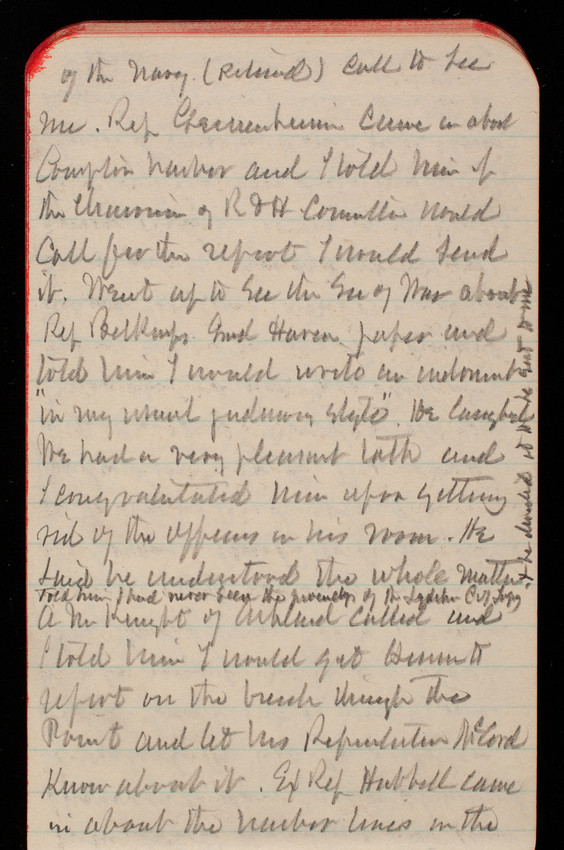 of the Navy (retired) call to see
me. Rep came in about
Compton harbor and I told him if
the Chairman of R & H Committee would
call for the report I would send
it. Went up to see the Sec of War about
Rep Belknap Grand Haven paper and
told him I would write an indorsmt
"in my usual style". He laughed
We had a very pleasant talk and
I congratulated him upon getting
rid of the officers in his room. He
said he understood the whole matter
told him I had never seen the of the City
A Mr Knight of Ashland called and
I told him I would get to
report on the breach through the
Point and let his Representative McCord
know about it. Ex Rep Hubbell came
in about the harbor lines in the
& he decided it to be sent to me